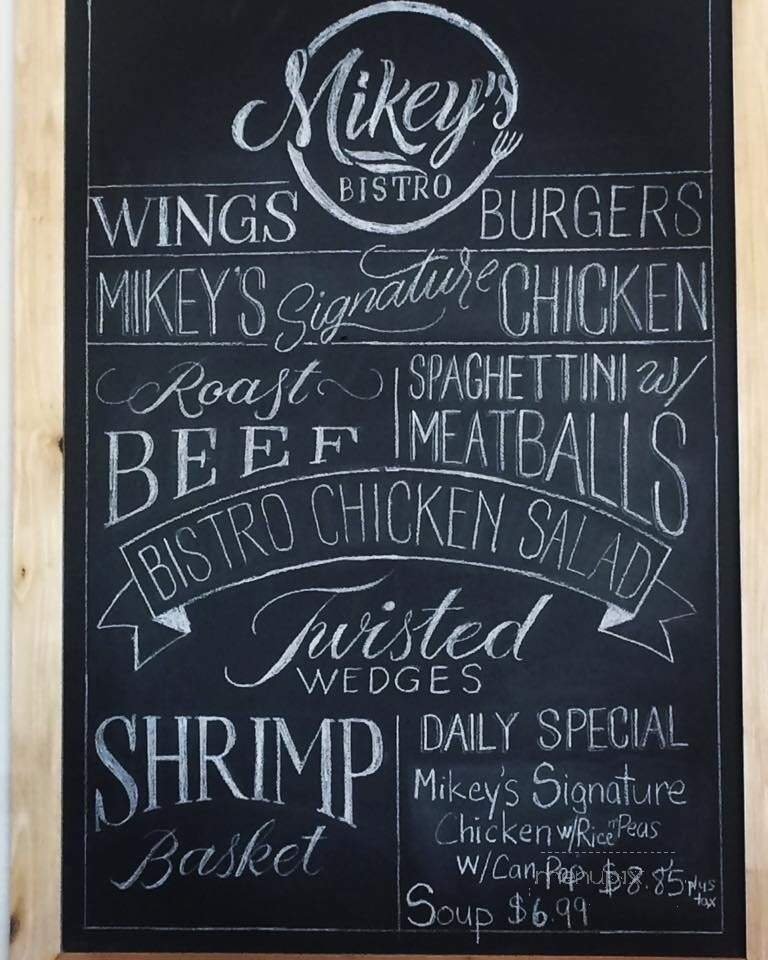 Mikey's
BISTRO
WINGS
BURGERS
MIKEY'S Signature CHICKEN
Roast
BEEF
SPAGHETTINI w/
MEATBALLS
BISTRO CHICKEN SALAD
Twisted
WEDGES
SHRIMP
Basket
DAILY SPECIAL
Mikey's Signature
Chicken w/Rice n Peas
w/Can Pop $8.85 plus
tax
Soup $6.99
menupix